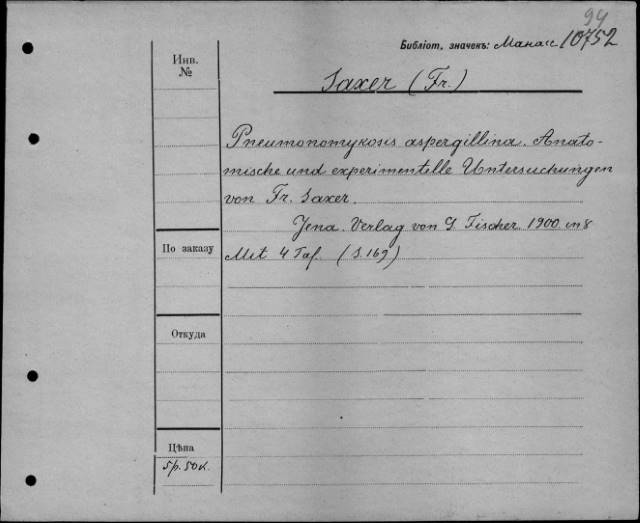 94
Библіот. значекъ: Манасс 10752
Инв. №
Saxer (Fr.)
Pneumonomykosis aspergillina. Anato-
mische und experimentelle Untersuchungen
von Fr. Saxer.
Jena. Verlag von G. Fischer. 1900. in 8
По заказу
Mit 4 Taf. (S. 169)
Откуда
Цѣна
5 р. 50 к.